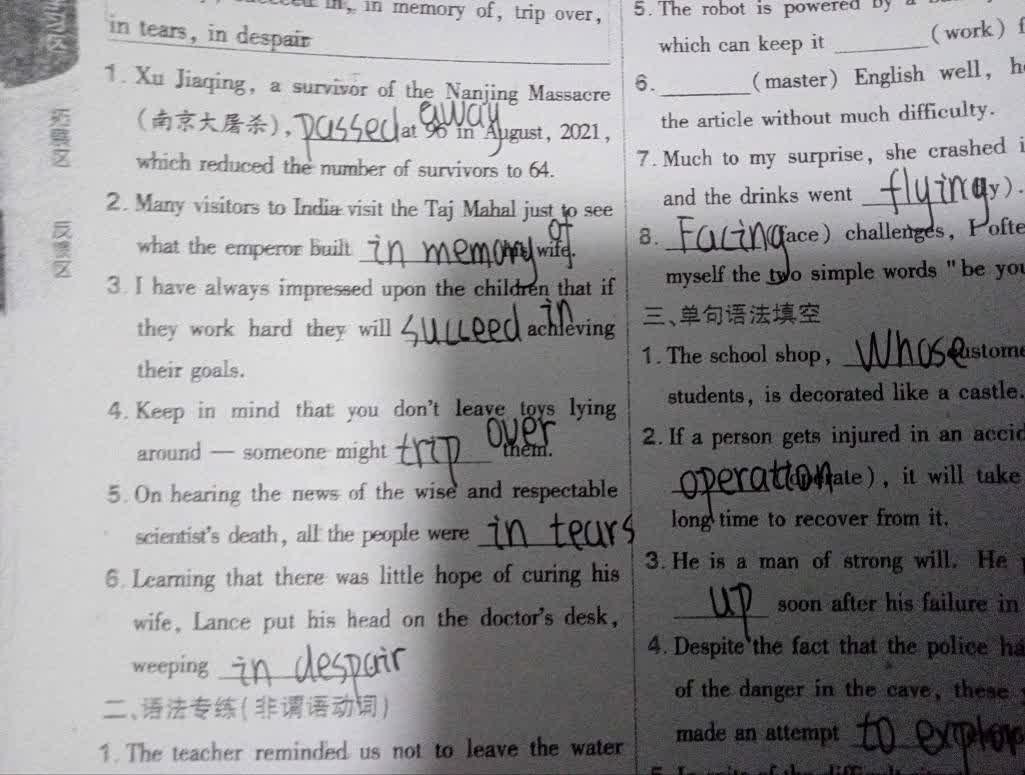 in, in memory of, trip over,
in tears, in despair
1. Xu Jiaqing, a survivor of the Nanjing Massacre
(南京大屠杀), passed away at 96 in August, 2021,
which reduced the number of survivors to 64.
2. Many visitors to India visit the Taj Mahal just to see
what the emperor built in memory of wife.
3. I have always impressed upon the children that if
they work hard they will succeed in achieving
their goals.
4. Keep in mind that you don't leave toys lying
around — someone might trip over them.
5. On hearing the news of the wise and respectable
scientist's death, all the people were in tears
6. Learning that there was little hope of curing his
wife, Lance put his head on the doctor's desk,
weeping in despair
二、语法专练(非谓语动词)
1. The teacher reminded us not to leave the water
拓展区
反馈区
5. The robot is powered by a
which can keep it ______ (work)
6. ______ (master) English well,
the article without much difficulty.
7. Much to my surprise, she crashed
and the drinks went flying y).
8. Facing face) challenges, I
myself the two simple words "be
三、单句语法填空
1. The school shop, Whose
students, is decorated like a castle.
2. If a person gets injured in an
operation ate), it will take
long time to recover from it.
3. He is a man of strong will. He
up soon after his failure in
4. Despite the fact that the police
of the danger in the cave, these
made an attempt to